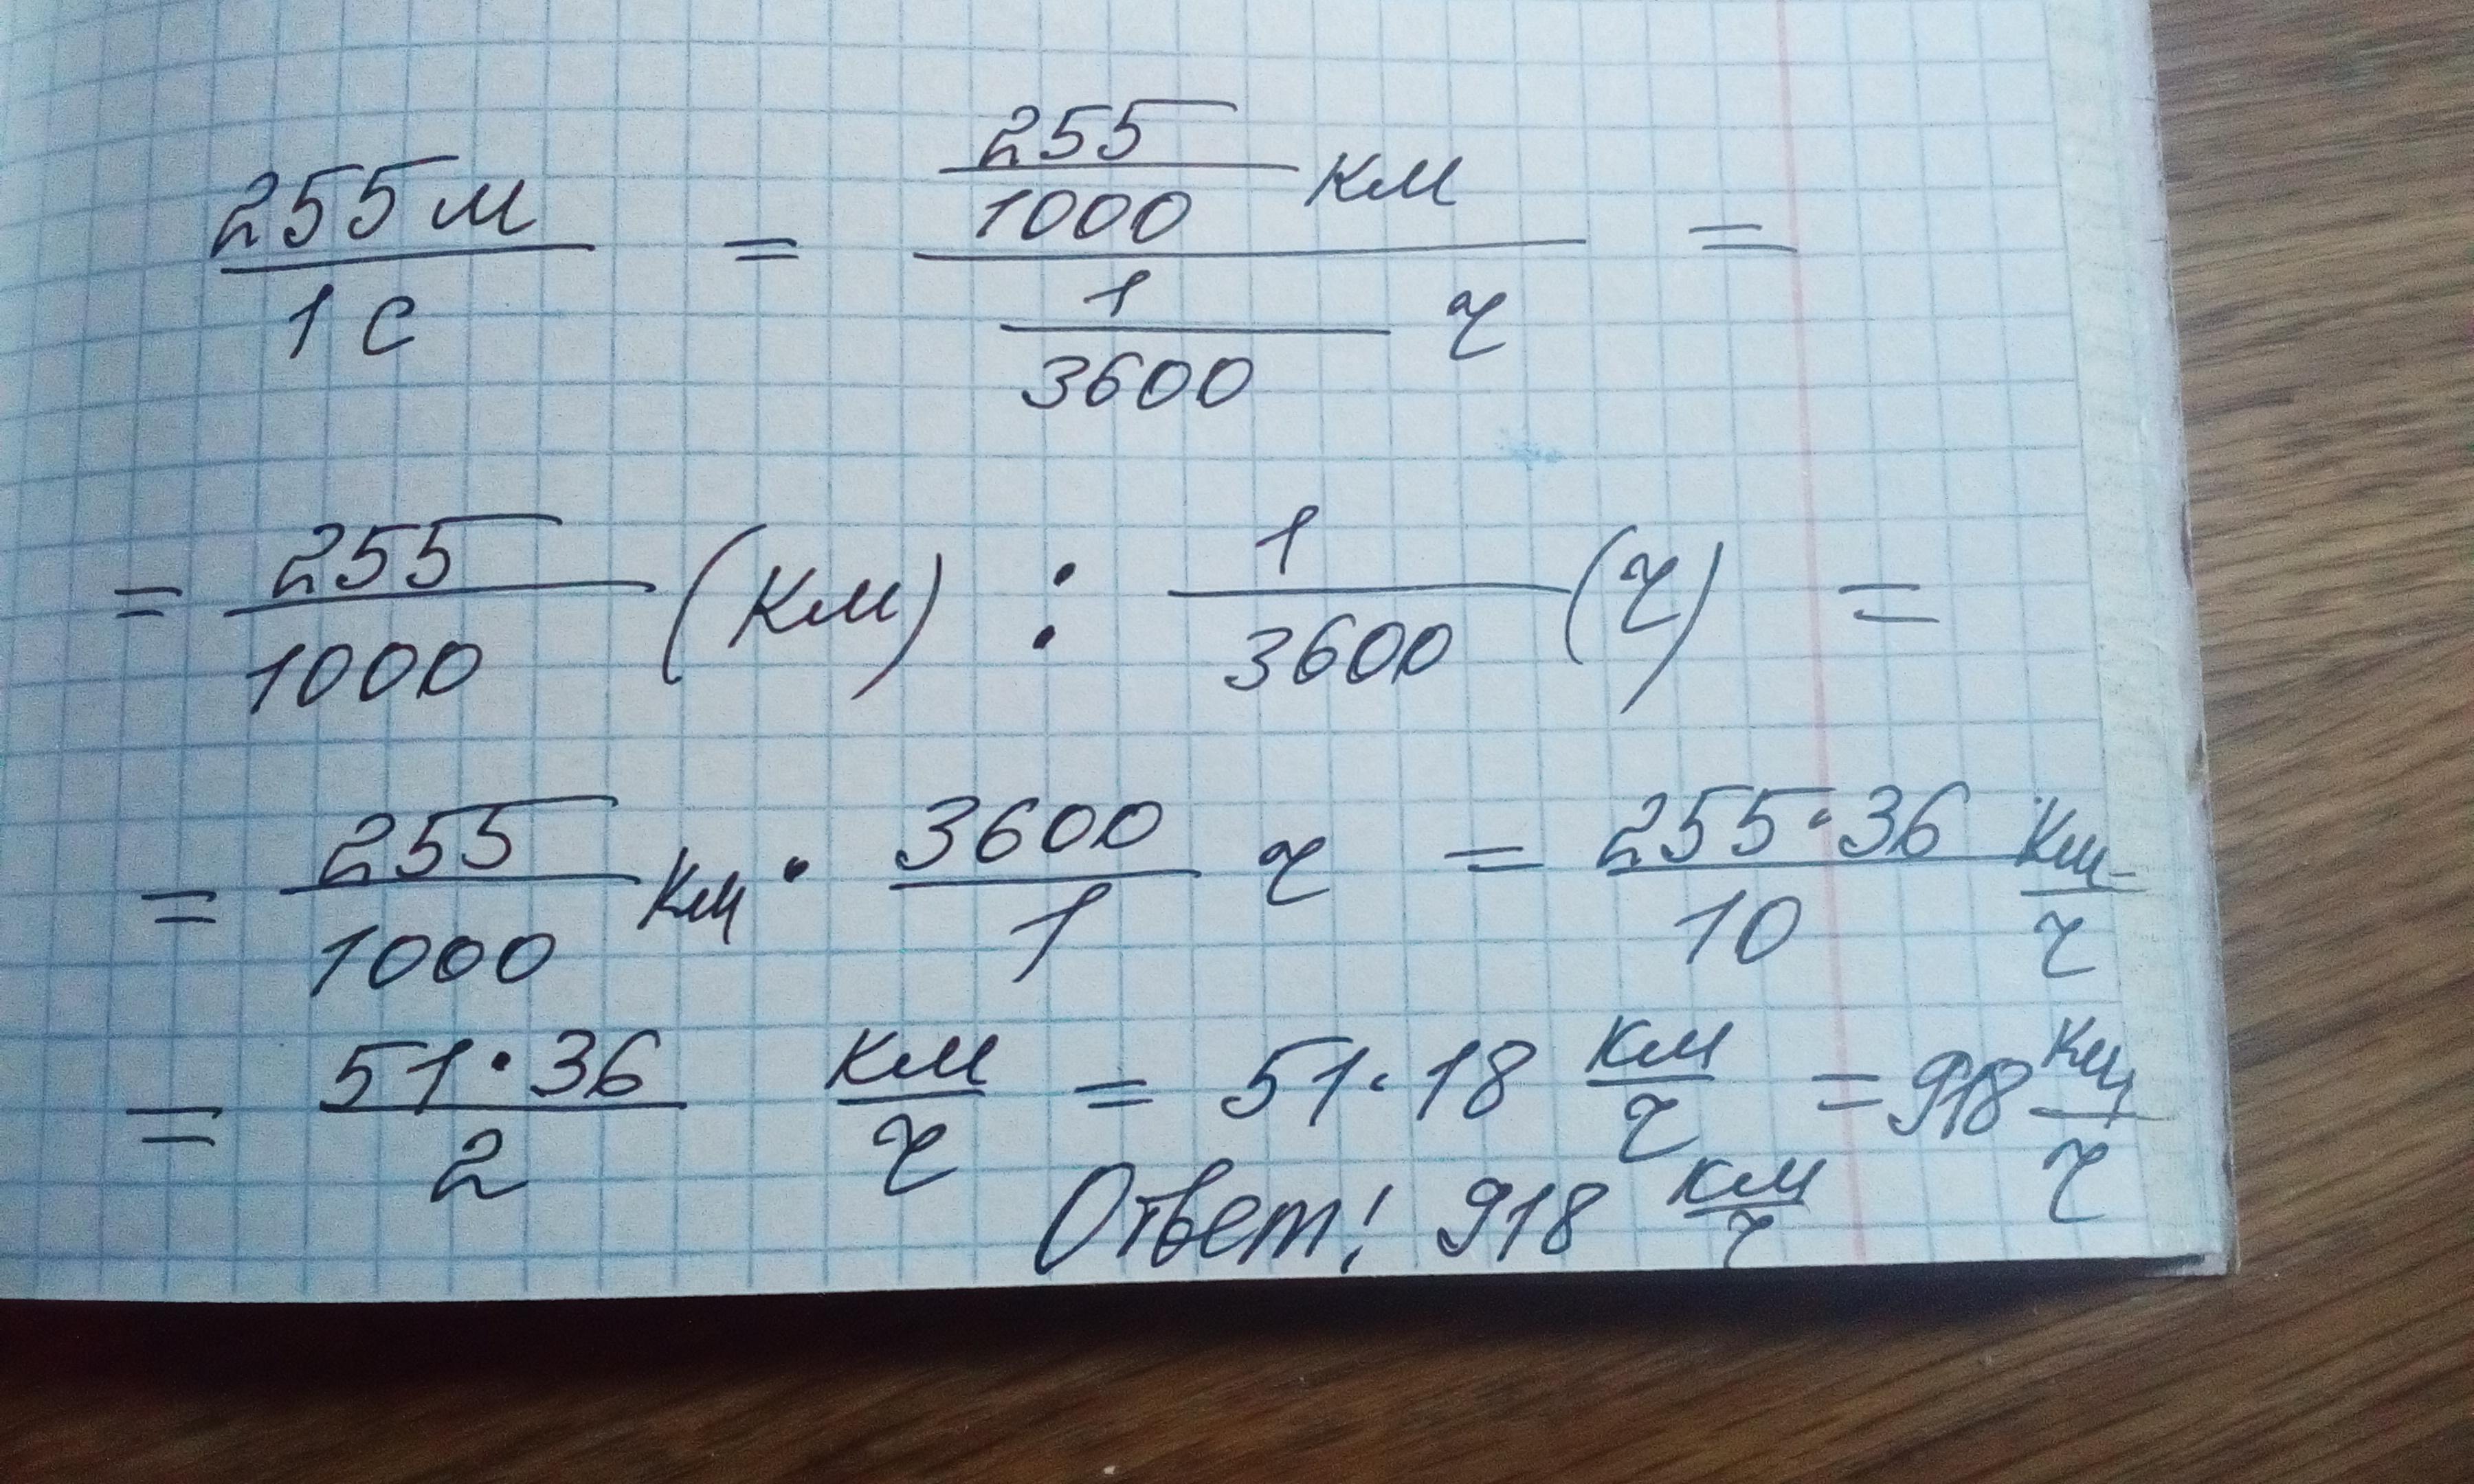 255 м / 1 с = 255/1000 км / 1/3600 ч =
= 255/1000 (км) : 1/3600 (ч) =
= 255/1000 км · 3600/1 ч = 255·36/10 км/ч
= 51·36/2 км/ч = 51·18 км/ч = 918 км/ч
Ответ! 918 км/ч